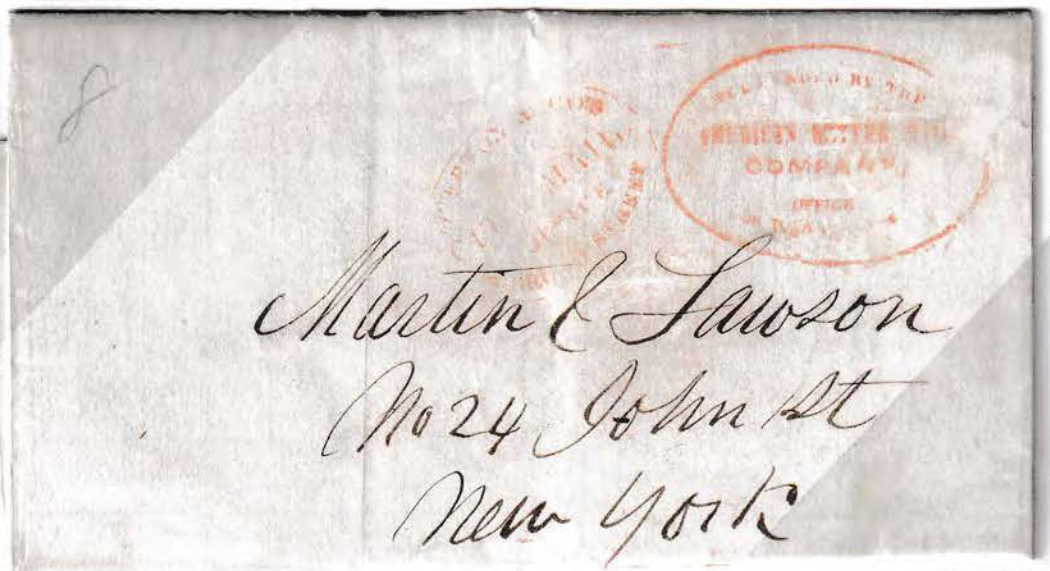 8
FORWARDED BY THE
AMERICAN LETTER MAIL
COMPANY,
OFFICE
CITY
STREET
Martin & Lawson
No 24 John St
New York